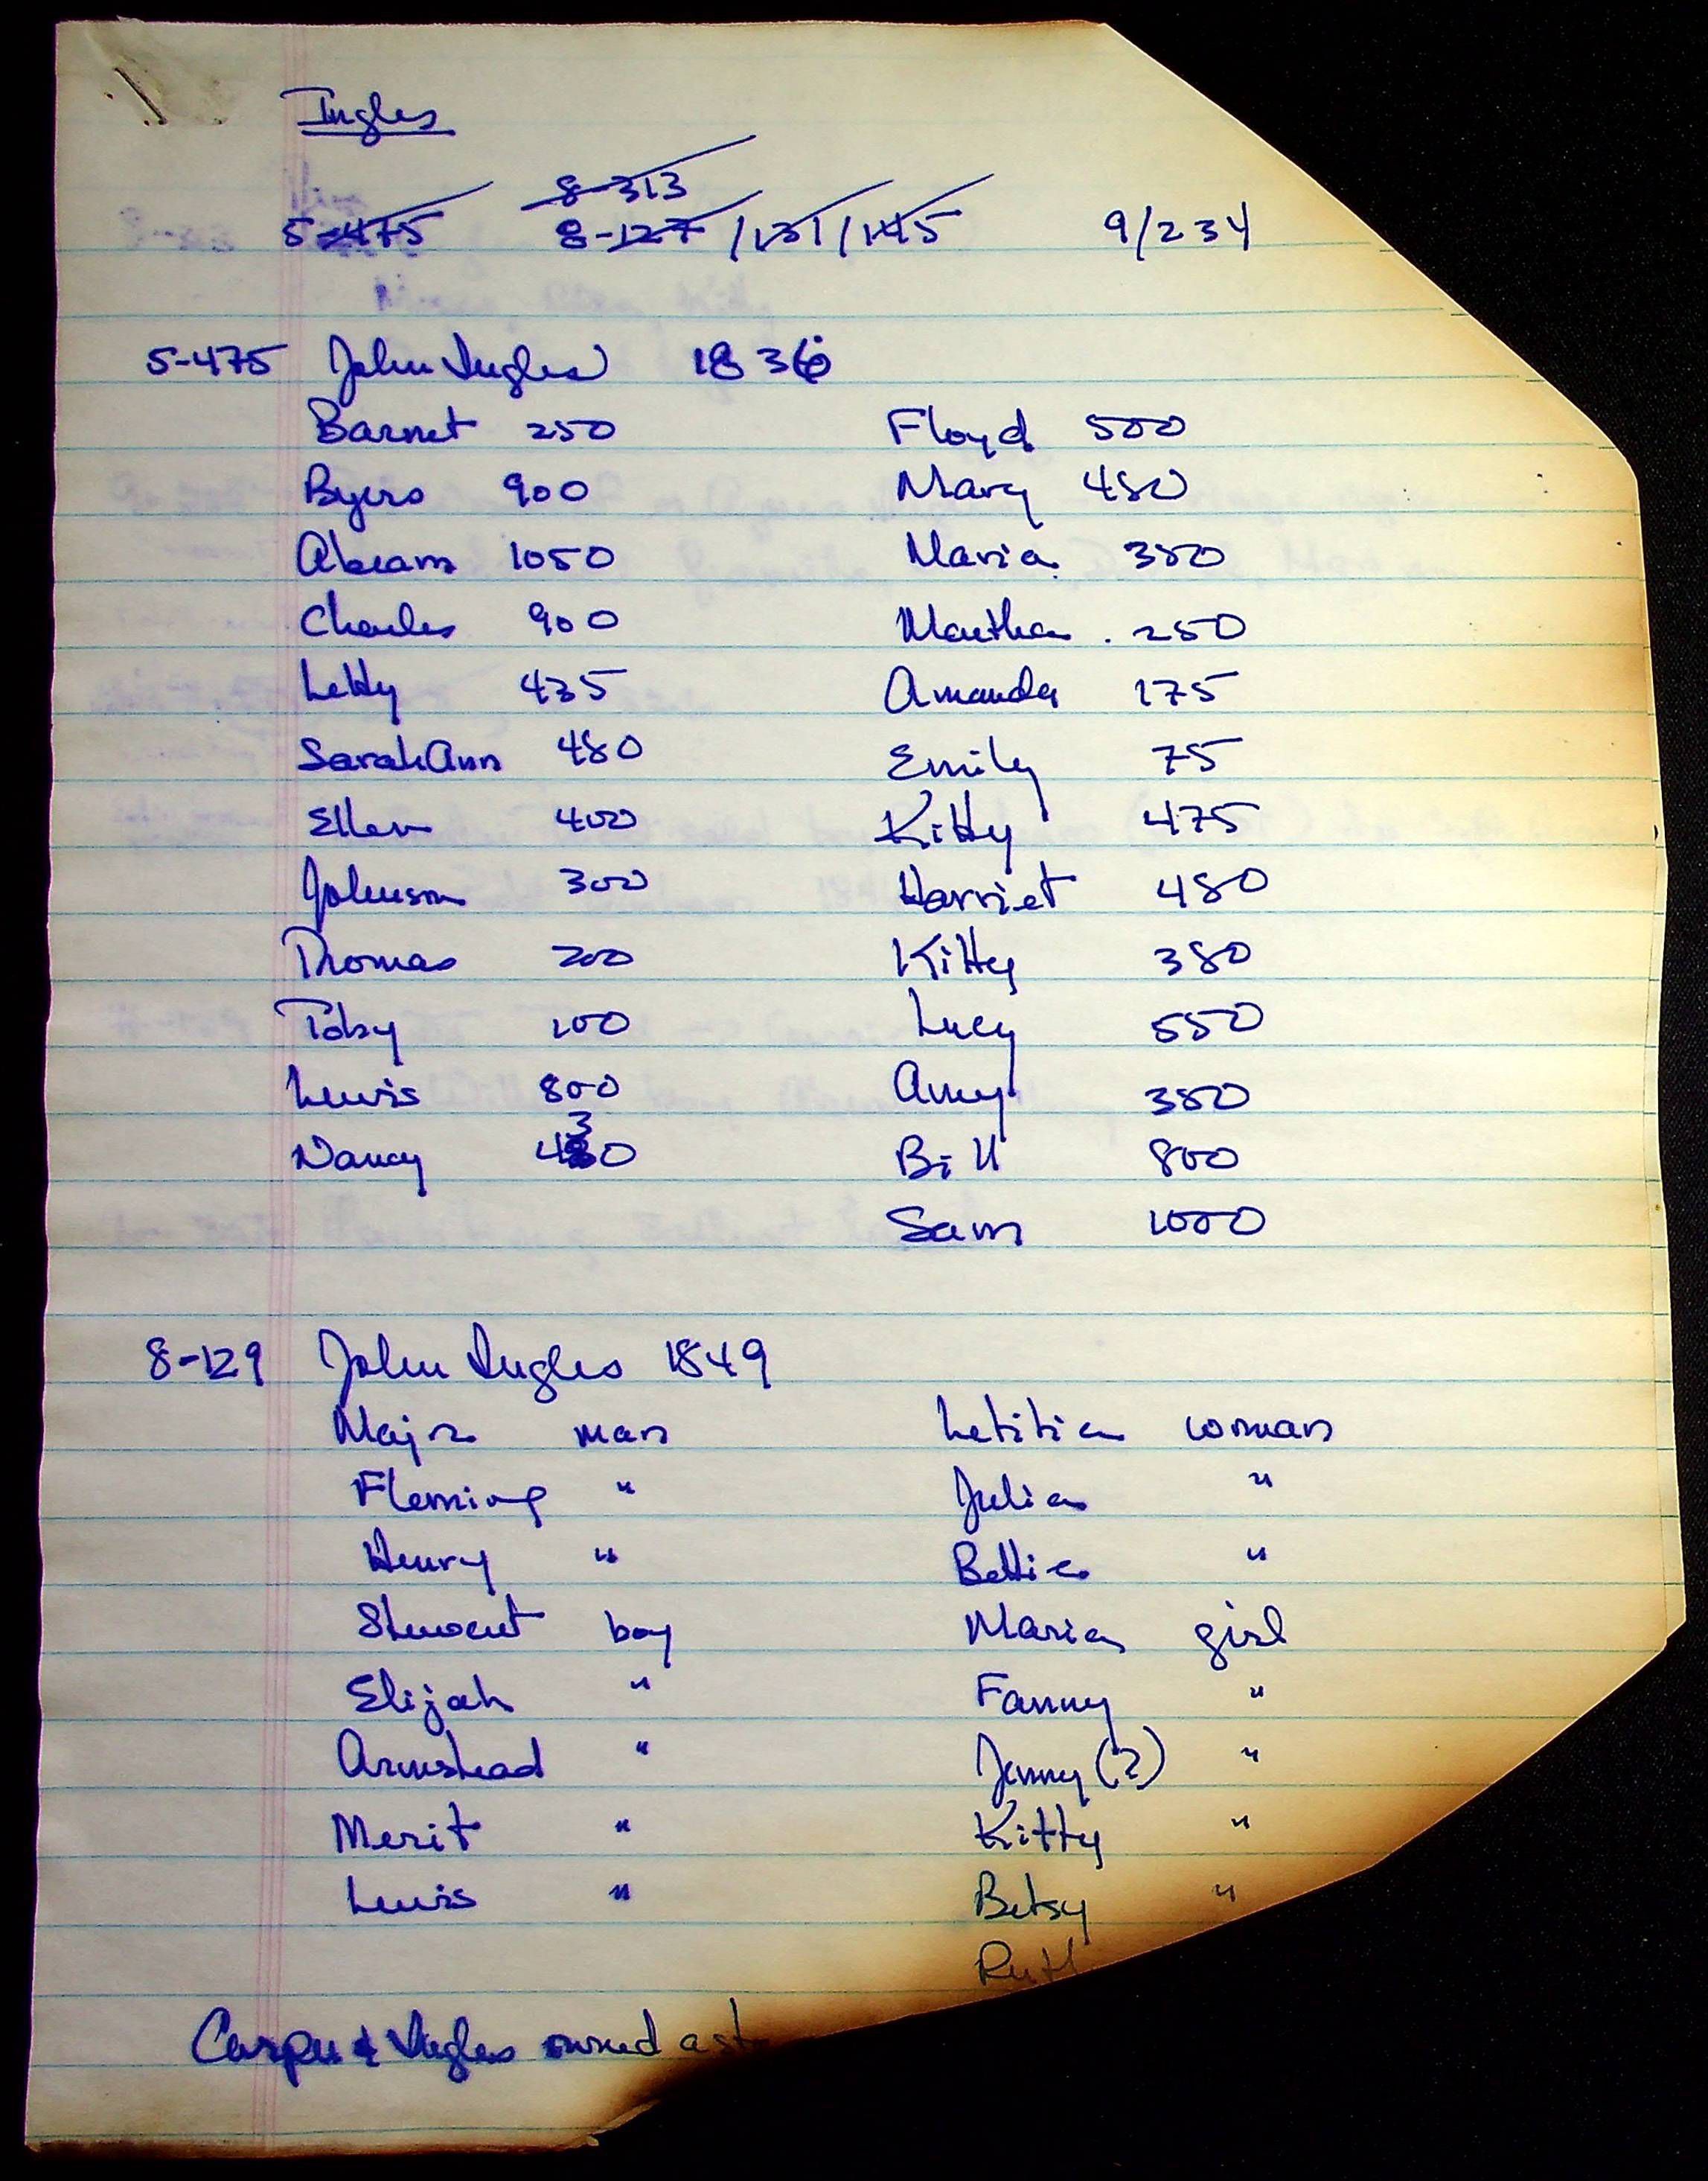 Ingles
8-313
5-475 8-127 /131/145 9/234
5-475 John Ingles 1836
Barnet 250 Floyd 500
Byers 900 Mary 450
Abram 1050 Maria 350
Charles 900 Martha 250
Letty 435 Amanda 175
Sarah Ann 480 Emily 75
Ellen 400 Kitty 475
Johnson 300 Harriet 480
Thomas 200 Kitty 380
Toby 100 Lucy 550
Lewis 800 Amy 350
Nancy 430 Bill 800
Sam 1000
8-129 John Ingles 1849
Major man Letitia woman
Fleming " Julia "
Henry " Bettie "
Stewart boy Maria girl
Elijah " Fanny "
Armstead " Jenny (?) "
Merit " Kitty "
Lewis " Betsy "
Ruth
Carper & Ingles owned a st